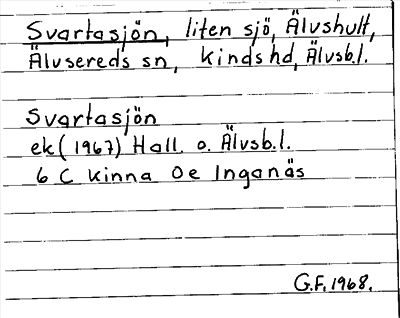 Svartasjön, liten sjö, Älvshult,
Älvsereds sn, Kinds hd, Älvsb.l.
Svartasjön
ek (1967) Hall. o. Älvsb.l.
6 C Kinna 0e Inganäs
G.F. 1968.